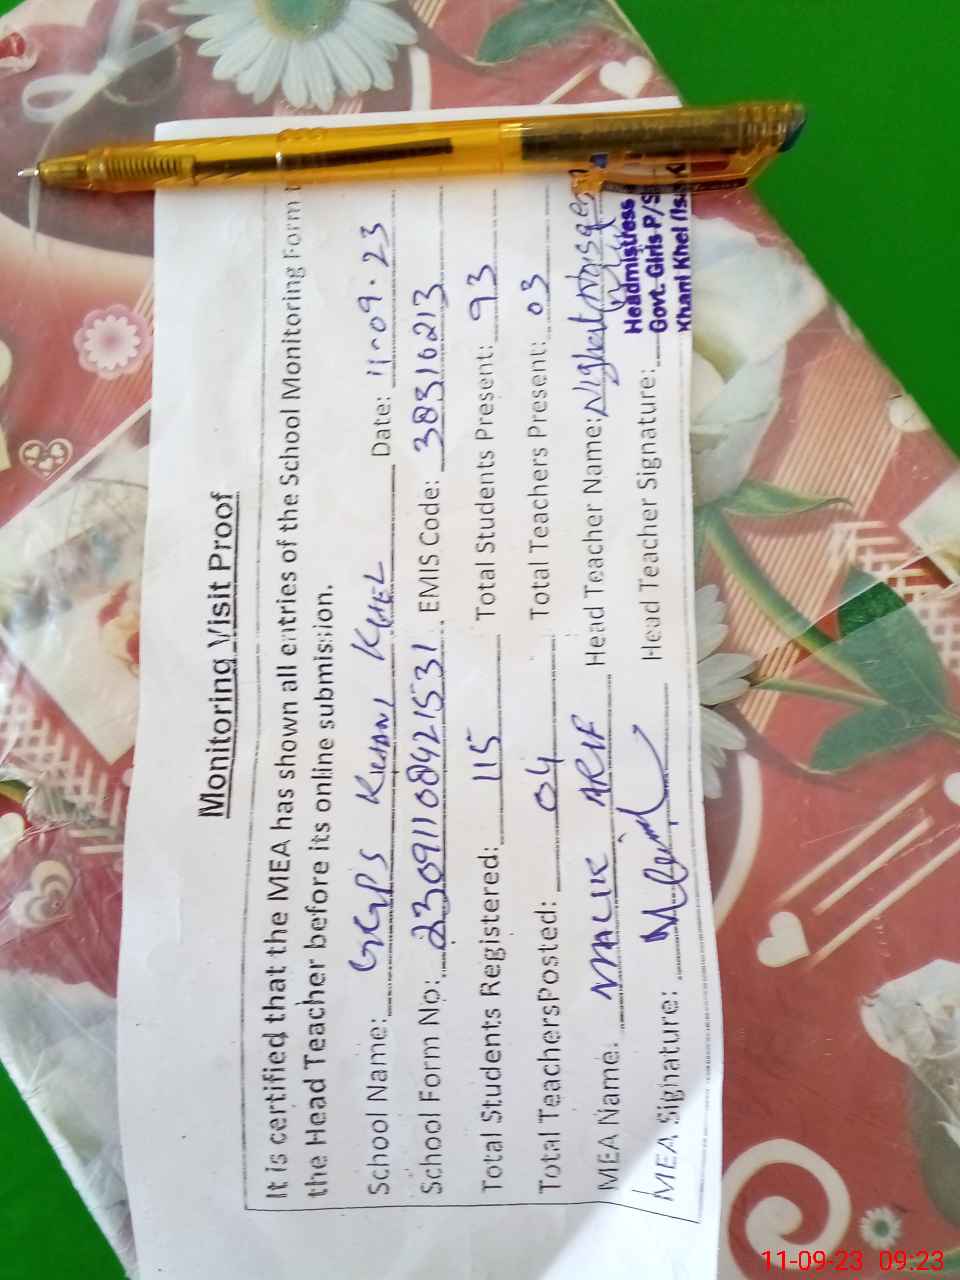 Monitoring Visit Proof
It is certified that the MEA has shown all entries of the School Monitoring Form t
the Head Teacher before its online submission.
School Name: GGPS KHANI KHEL Date: 11-09-23
School Form No: 230911084215531 EMIS Code: 38310213
Total Students Registered: 115 Total Students Present: 93
Total TeachersPosted: 04 Total Teachers Present: 03
MEA Name: MALIK ARIF Head Teacher Name: Nighest
MEA Signature: Head Teacher Signature:
Headmistress
Govt. Girls P/S
Khani Khel (Isa
11-09-23 09:23